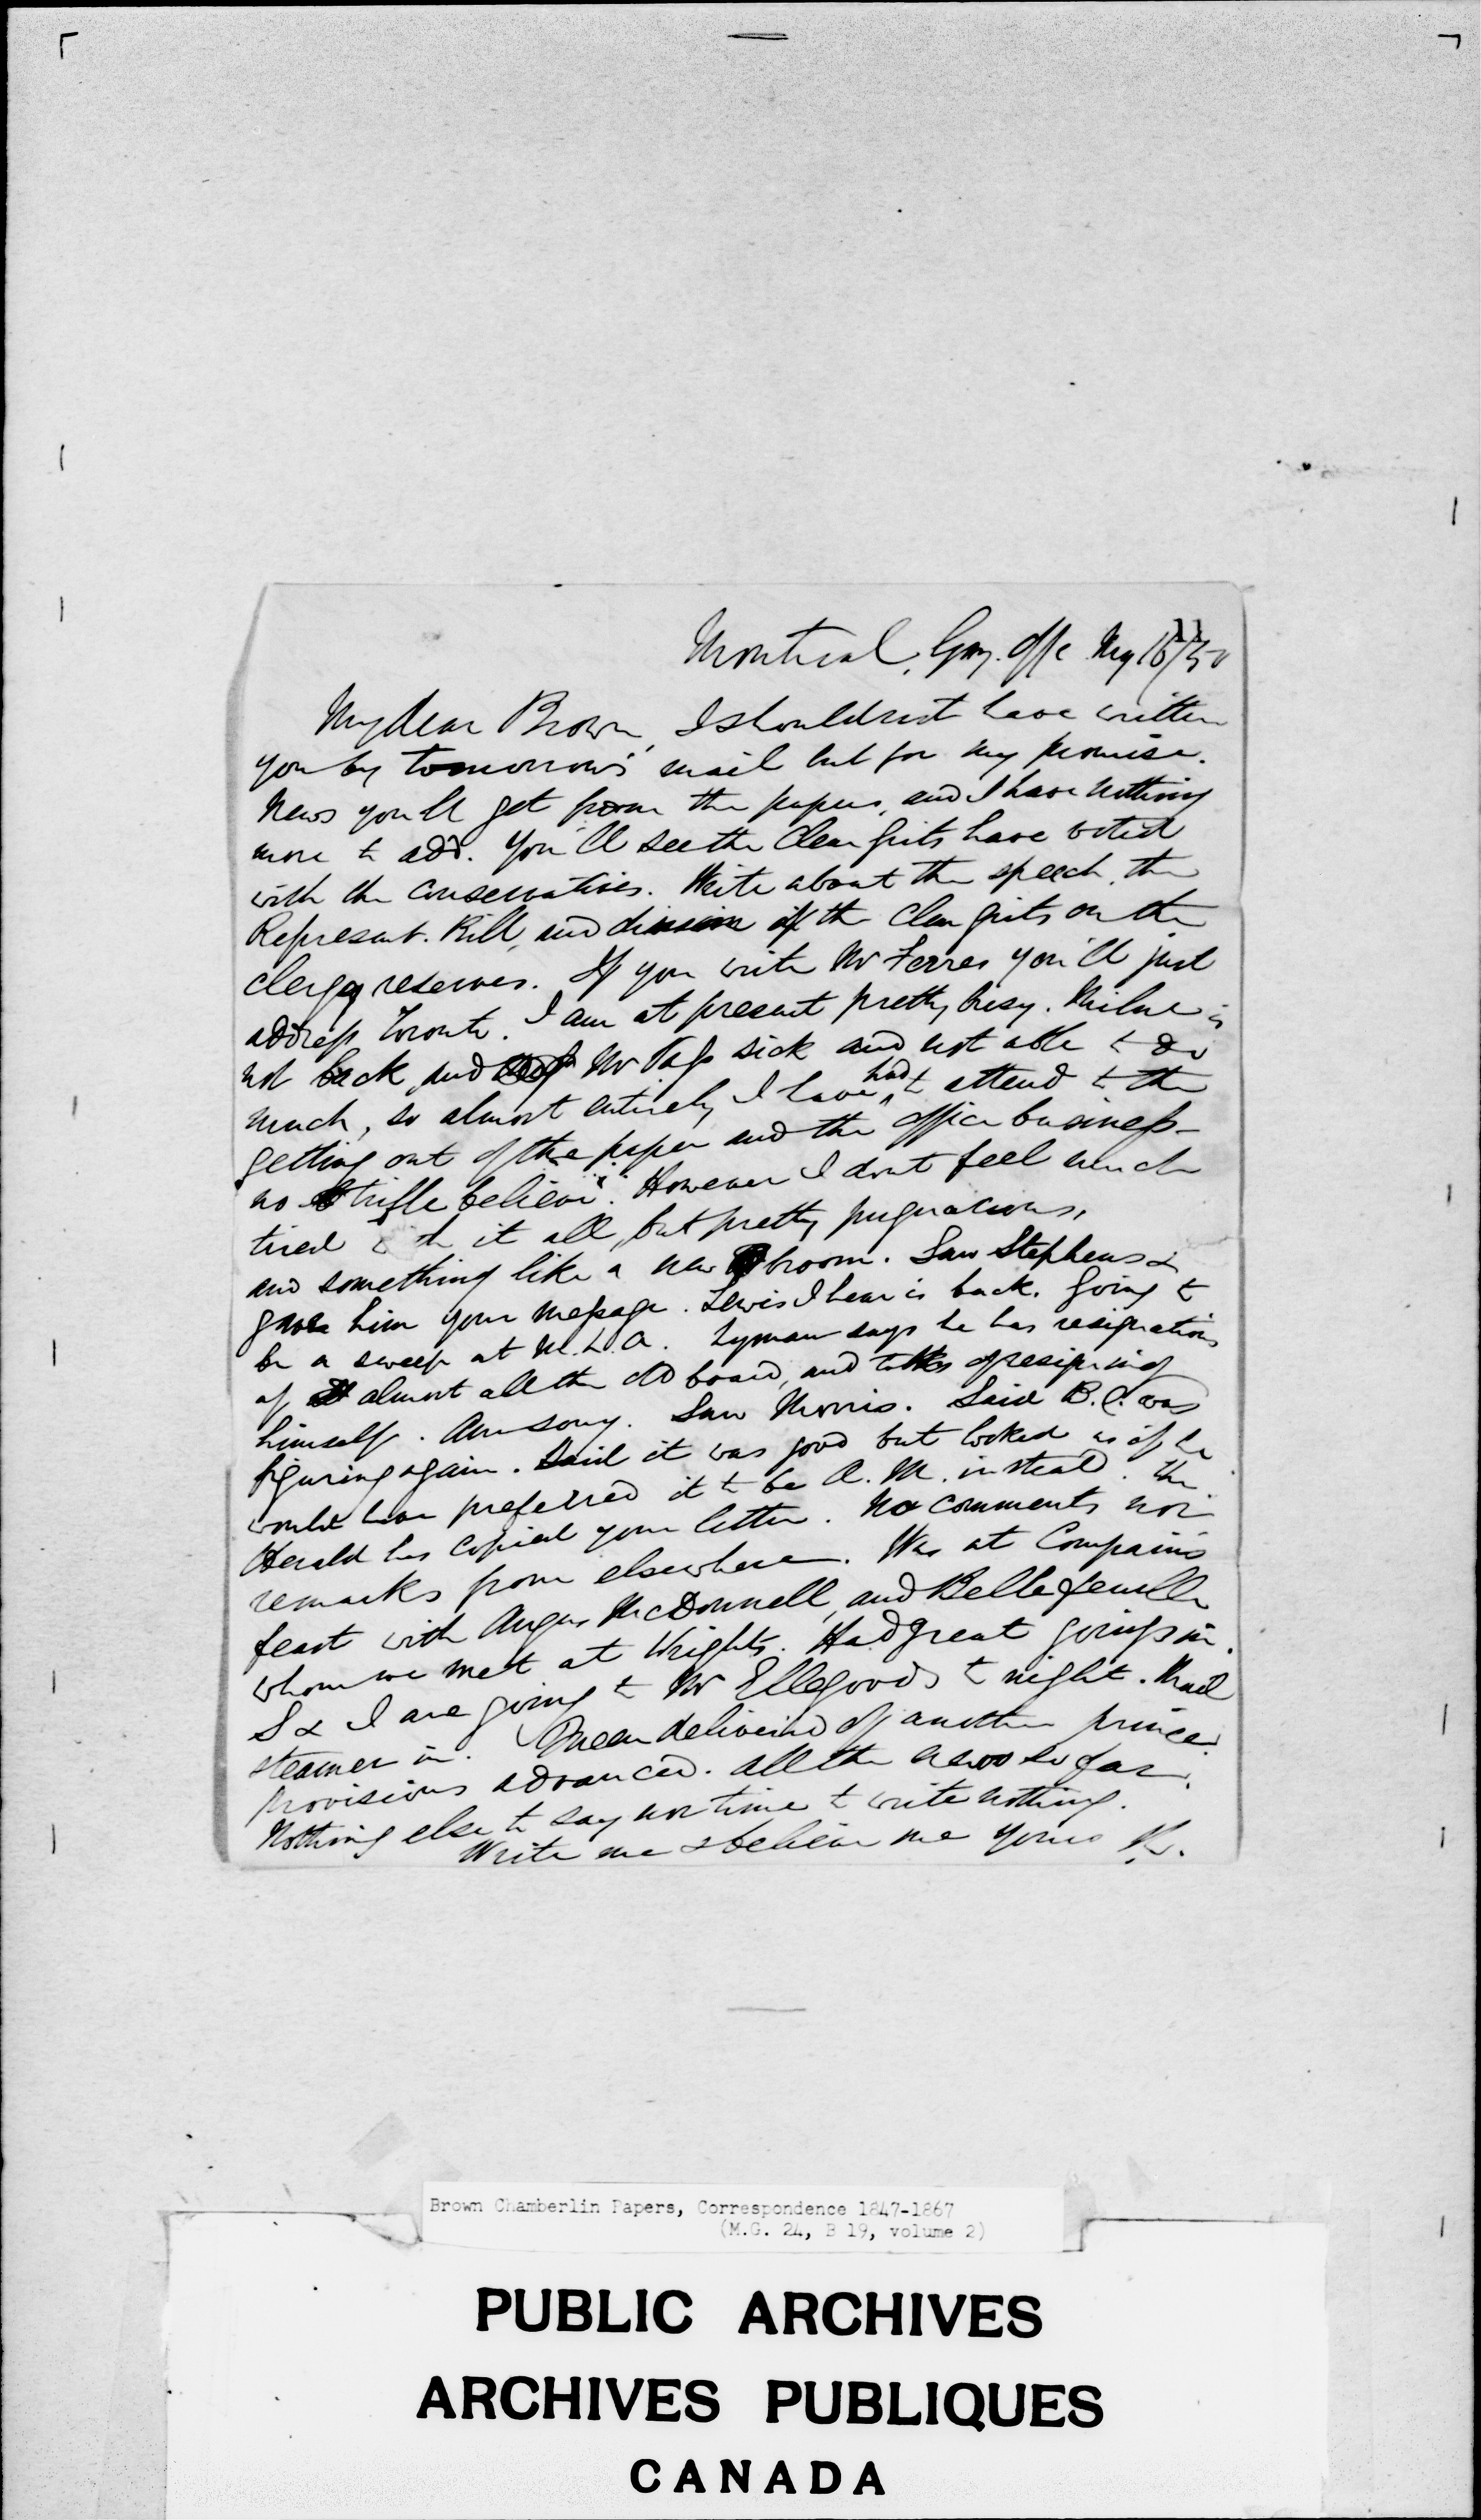 Montreal, Gaz. Offe May 16/50
11
My dear Brown, I should not have written
you by tomorrow's mail but for my promise.
News you'll get from the papers, and I have nothing
more to add. You'll see the Clear Grits have voted
with the conservatives. Write about the speech, the
Represent. Bill, and division of the Clear Grits on the
clergy reserves. If you write Mr Ferres you'll just
address Toronto. I am at present pretty busy. Milne is
not back, and Mr sick and not able to do
much, so almost entirely I have had to attend to the
getting out of the paper and the office business—
no trifle believe. However I dont feel much
tired with it all, but pretty pugnacious,
and something like a new broom. Saw Stephens &
gave him your message. Lewis I hear is back. Going to
be a sweep at M.L.A. Lyman says he has resignations
of almost all the old board, and talks of resigning
himself. Am sorry. Saw Morris. Said B.C. was
figuring again. Said it was good but looked as if he
would have preferred it to be A.M. instead. The
Herald has copied your letter. No comments nor
remarks from elsewhere. Was at Compain's
feast with Angus McDonnell, and Bellefeuille
whom we met at Wrights. Had great goings in.
S & I are going to Mr Ellegoods to night. Mail
steamer in. Queen delivered of another prince.
Provisions advanced. All the news so far.
Nothing else to say nor time to write nothing.
Write me & believe me yours
Brown Chamberlin Papers, Correspondence 1847-1867
(M.G. 24, B 19, volume 2)
PUBLIC ARCHIVES
ARCHIVES PUBLIQUES
CANADA